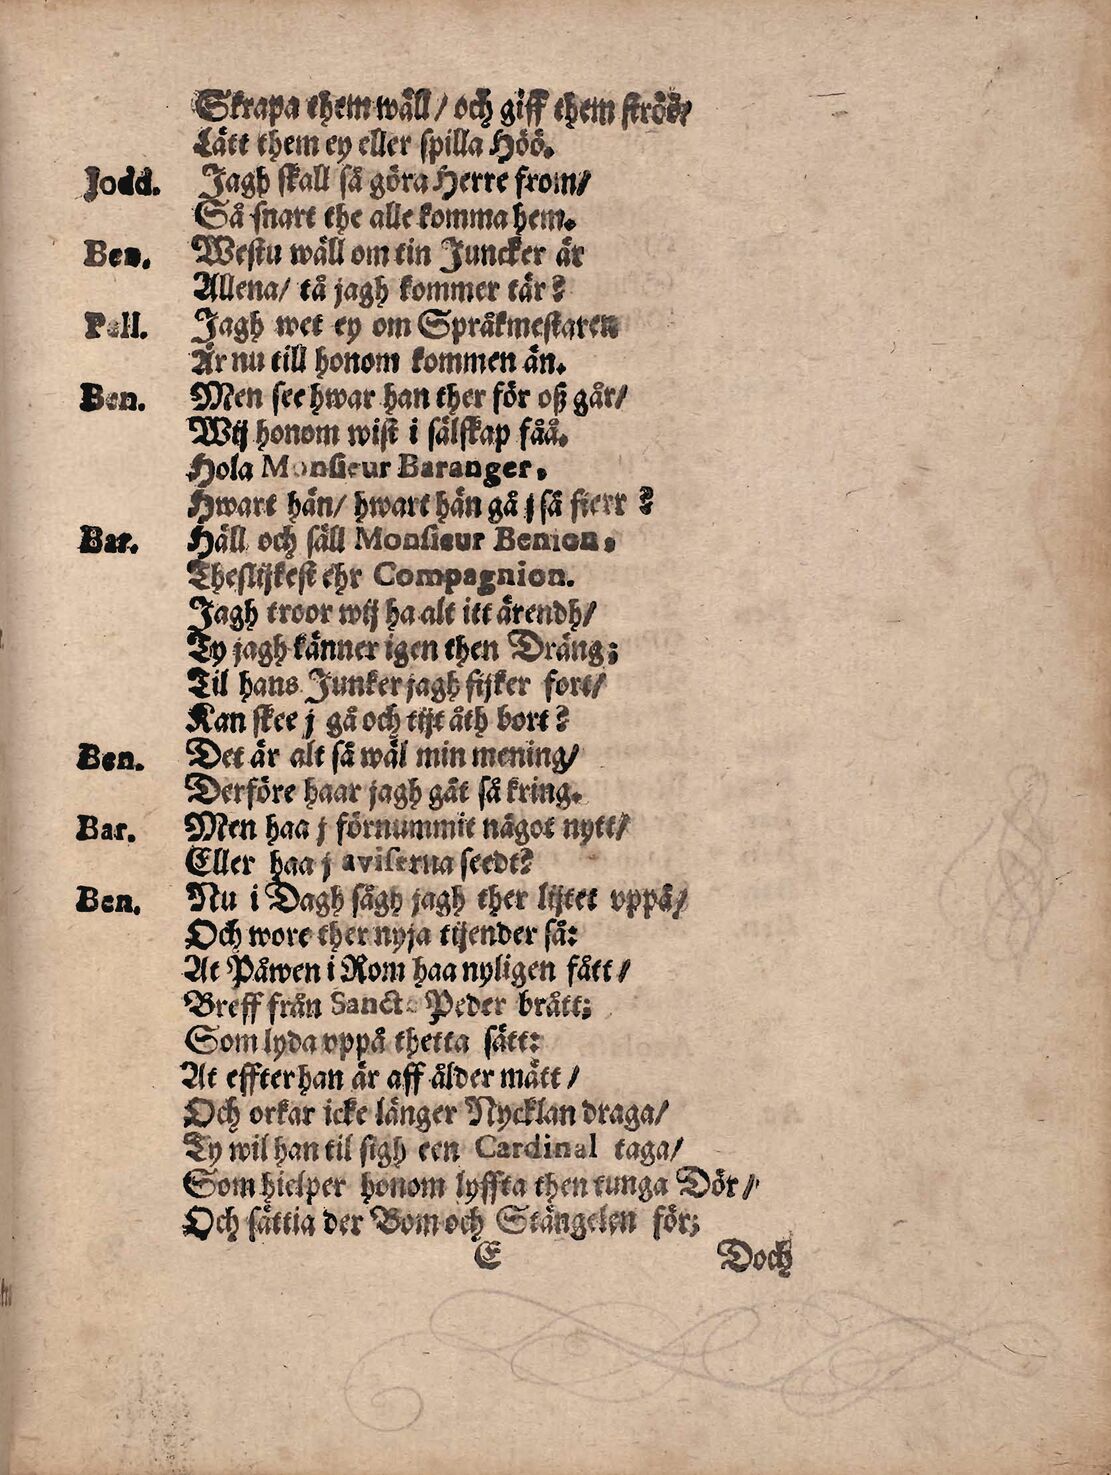 Skrapa them wäll/ och giff them ströö/
Lätt them ey eller spilla Höö.
Jodd. Jagh skall så göra Herre from/
Så snart the alle komma hem.
Ben. Westu wäll om tin Juncker är
Allena/ tå jagh kommer tär?
Pall. Jagh wet ey om Språkmestaren
Är nu till honom kommen än.
Ben. Men see hwar han ther för oß går/
Wij honom wist i sälskap fåå.
Hola Monsieur Baranger.
Hwart hän/ hwart hän gå j så fierr?
Bar. Häll och säll Monsieur Benion.
Theslijkest ehr Compagnion.
Jagh troor wij ha alt itt ärendh/
Ty jagh känner igen then Dräng;
Til hans Junker jagh fijker fort/
Kan skee j gå och tijt åth bort?
Ben. Det är alt så wäl min mening/
Derföre haar jagh gåt så kring.
Bar. Men haa j förnummit något nytt/
Eller haa j aviserna seedt?
Ben. Nu i Dagh sågh jagh ther lijtet vppå/
Och wore ther nyja tijender så:
At Påwen i Rom haa nyligen fått/
Breff från Sancte Peder brått;
Som lyda vppå thetta sätt:
At effter han är aff ålder mätt/
Och orkar icke länger Nycklan draga/
Ty wil han til sigh een Cardinal taga/
Som hielper honom lyffta then tunga Dör/
Och sättia der Bom och Stängelen för;
E Doch